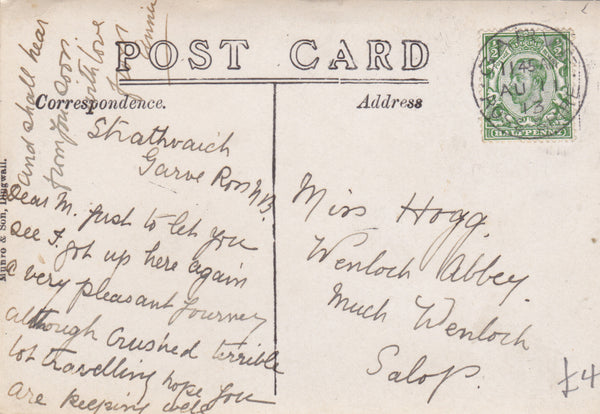 POST CARD
Correspondence.
Address
Strathvaich
Garve Ross N.B.
Dear M. just to let you
see I got up here again
a very pleasant journey
although crushed terrible
lot travelling hope you
are keeping well
and shall hear
from you soon
with love
from Annie
Miss Hogg.
Wenloch Abbey.
Much Wenloch
Salop.
Munro & Son, Dingwall.
11.45
AU 11
13
HALFPENNY
£4